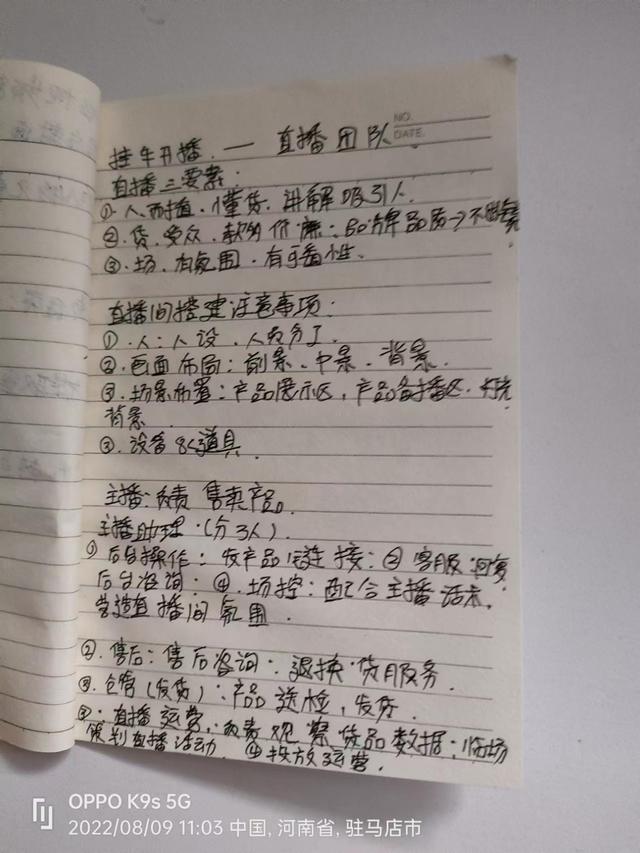 NO.
DATE.
挂车开播.一 直播团队
直播三要素:
①人.讲播.懂货.讲解吸引人.
②.货.受众.款多价廉:品牌品质→不
③.场.有氛围.有可看性.
直播间搭建注意事项:
①.人:人设.人员分工.
②.画面布局:前景、中景、背景.
③.场景布置:产品展示区,产品备播区.灯光
背景.
③.设备 道具.
主播:负责售卖产品.
主播助理.(分3人).
①后台操作:发产品链接:②客服:回复
后台咨询:④.场控:配合主播话术,
营造直播间氛围.
②.售后:售后咨询:退换货服务.
③.仓管(发货):产品送检,发货.
②:直播运营:负责观察货品数据:临场
策划直播活动.④投放运营.
OPPO K9s 5G
2022/08/09 11:03 中国, 河南省, 驻马店市